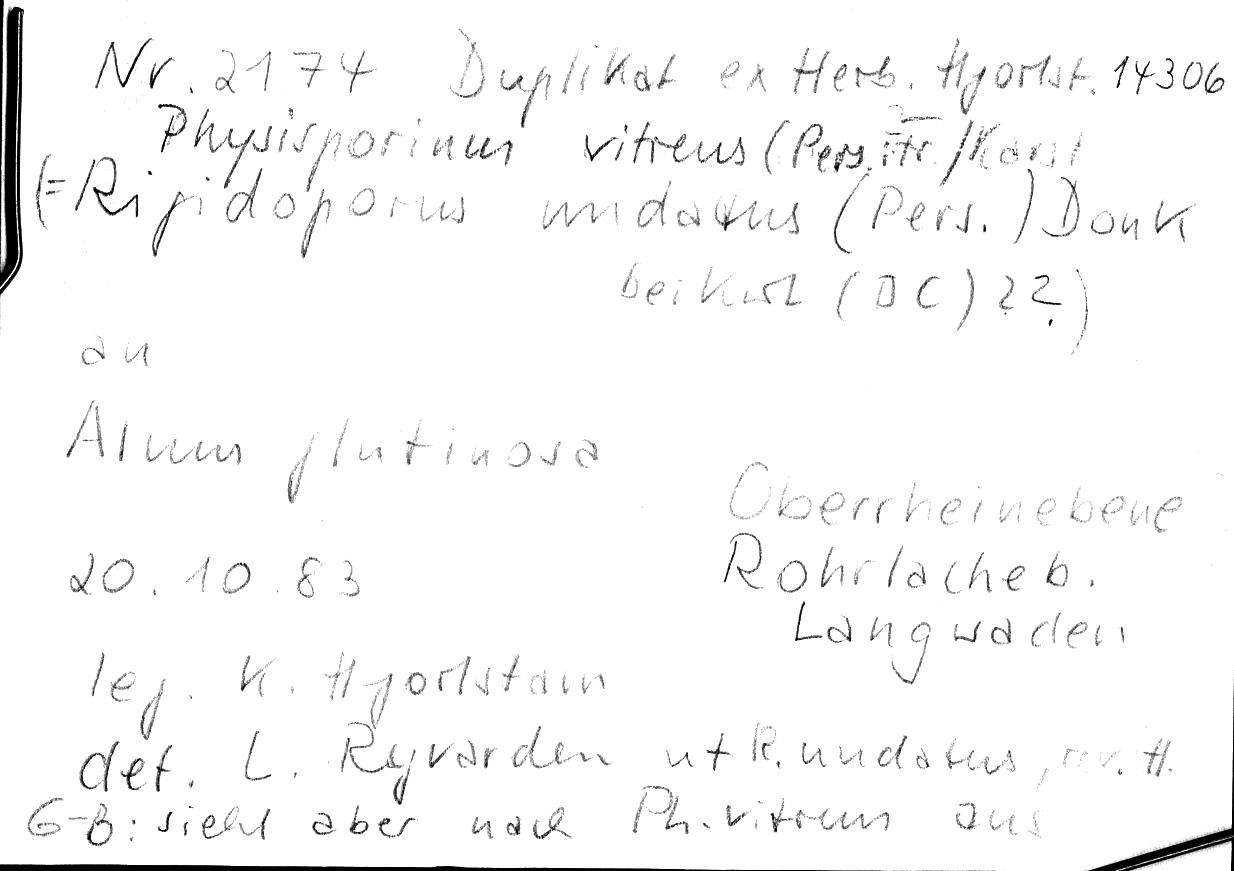 Nr. 2174 Duplikat ex Herb. Hjortst. 14306
Physisporinus vitreus (Pers. Karst
(= Rigidoporus undatus (Pers.) Donk
(DC) ??)
an
Alnus glutinosa
20.10.83
Oberrheinebene
Rohrlache b.
Langwaden
leg. K. Hjortstam
det. L. Ryvarden ut R. undatus, rev. H.
G-B: sieht aber nach Ph. vitreus aus